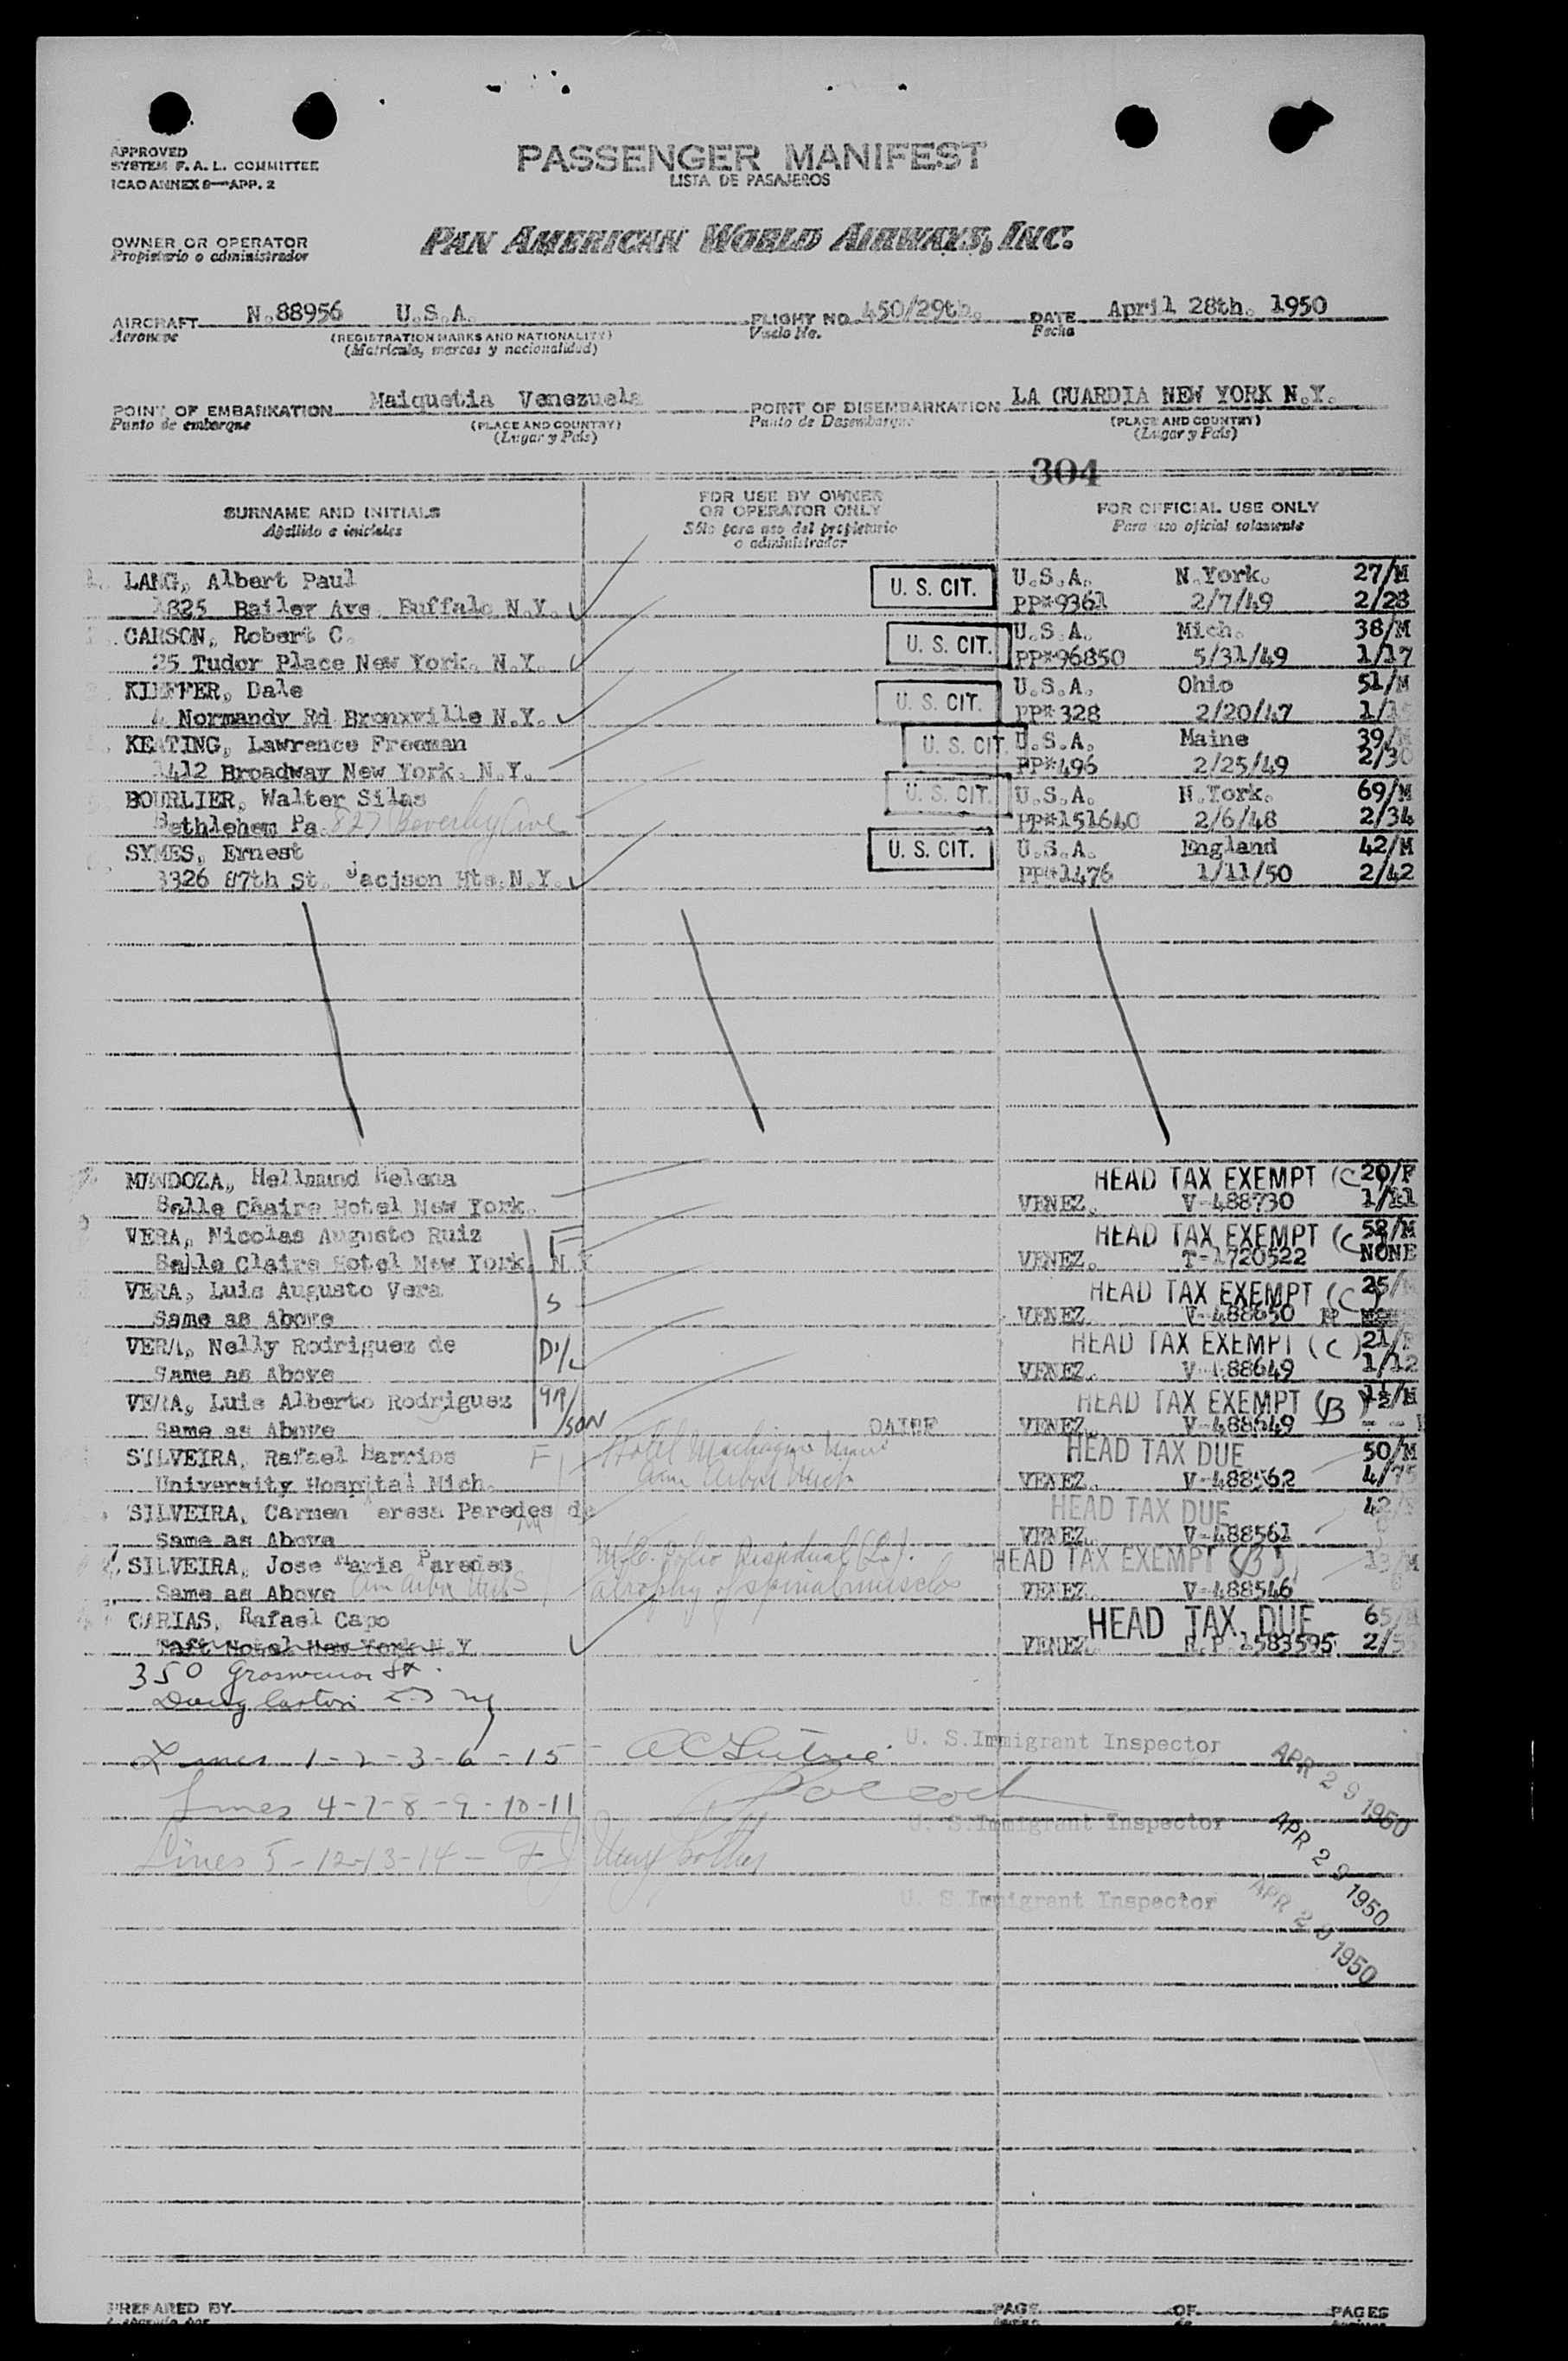 APPROVED
SYSTEM F. A. L. COMMITTEE
ICAO ANNEX 9—APP. 2
PASSENGER MANIFEST
LISTA DE PASAJEROS
OWNER OR OPERATOR
Propietario o administrador
PAN AMERICAN WORLD AIRWAYS, INC.
AIRCRAFT N.88956 U.S.A. FLIGHT NO. 450/29th. DATE April 28th. 1950
Aeronave (REGISTRATION MARKS AND NATIONALITY) Vuelo No. Fecha
(Matricula, marcas y nacionalidad)
POINT OF EMBARKATION Maiquetia Venezuela POINT OF DISEMBARKATION LA GUARDIA NEW YORK N.Y.
Punto de embarque (PLACE AND COUNTRY) Punto de Desembarque (PLACE AND COUNTRY)
(Lugar y País) (Lugar y País)
304
SURNAME AND INITIALS FOR USE BY OWNER OR OPERATOR ONLY FOR OFFICIAL USE ONLY
Apellido e iniciales Sólo para uso del propietario o administrador Para uso oficial solamente
1. LANG, Albert Paul U. S. CIT. U.S.A. N.York. 27/M
1825 Bailey Ave. Buffalo N.Y. PP*9361 2/7/49 2/23
CARSON, Robert C. U. S. CIT. U.S.A. Mich. 38/M
25 Tudor Place New York. N.Y. PP*96850 5/31/49 1/17
KIEFFER, Dale U. S. CIT. U.S.A. Ohio 51/M
4 Normandy Rd Bronxville N.Y. PP*328 2/20/47
KEATING, Lawrence Freeman U. S. CIT. U.S.A. Maine 39/M
1412 Broadway New York. N.Y. PP*496 2/25/49 2/30
BOURLIER, Walter Silas U. S. CIT. U.S.A. N.York. 69/M
Bethlehem Pa. 827 Beverley Ave PP*151640 2/6/48 2/34
SYMES, Ernest U. S. CIT. U.S.A. England 42/M
3326 87th St. Jacjson Hts.N.Y. PP*1476 1/11/50 2/42
MENDOZA, Hellmund Helena HEAD TAX EXEMPT (C 20/F
Belle Chaire Hotel New York. VENEZ. V-488730 1/11
VERA, Nicolas Augusto Ruiz F HEAD TAX EXEMPT (C) 52/M
Belle Claire Hotel New York. N.Y VENEZ. T-1720522 NONE
VERA, Luis Augusto Vera S HEAD TAX EXEMPT (C) 25/M
Same as Above VENEZ. V-488650
VERA, Nelly Rodriguez de D/L HEAD TAX EXEMPT (C) 21/F
Same as Above VENEZ. V-488649 1/12
VERA, Luis Alberto Rodriguez GR/SON HEAD TAX EXEMPT (B) 1½/M
Same as Above VENEZ. V-488649
SILVEIRA, Rafael Barrios F Hotel HEAD TAX DUE 50/M
University Hospital Mich. Ann Arbor Mich VENEZ. V-488562 4/75
SILVEIRA, Carmen Teresa Paredes de HEAD TAX DUE 42/
Same as Above VENEZ. V-488561
SILVEIRA, Jose Maria Paredes Polio Residual (L). HEAD TAX EXEMPT (B) 13/M
Same as Above Ann Arbor Mich atrophy of spinal muscles VENEZ. V-488546
CARIAS, Rafael Capo HEAD TAX DUE 65/M
Taft Hotel New York N.Y VENEZ. R.P.1583595 2/
350 Grosvenor St.
Lines 1-2-3-6-15 U. S.Immigrant Inspector APR 29 1950
Lines 4-7-8-9-10-11 U. S.Immigrant Inspector APR 29 1950
Lines 5-12-13-14 U. S Immigrant Inspector APR 29 1950
PREPARED BY PAGE OF PAGES